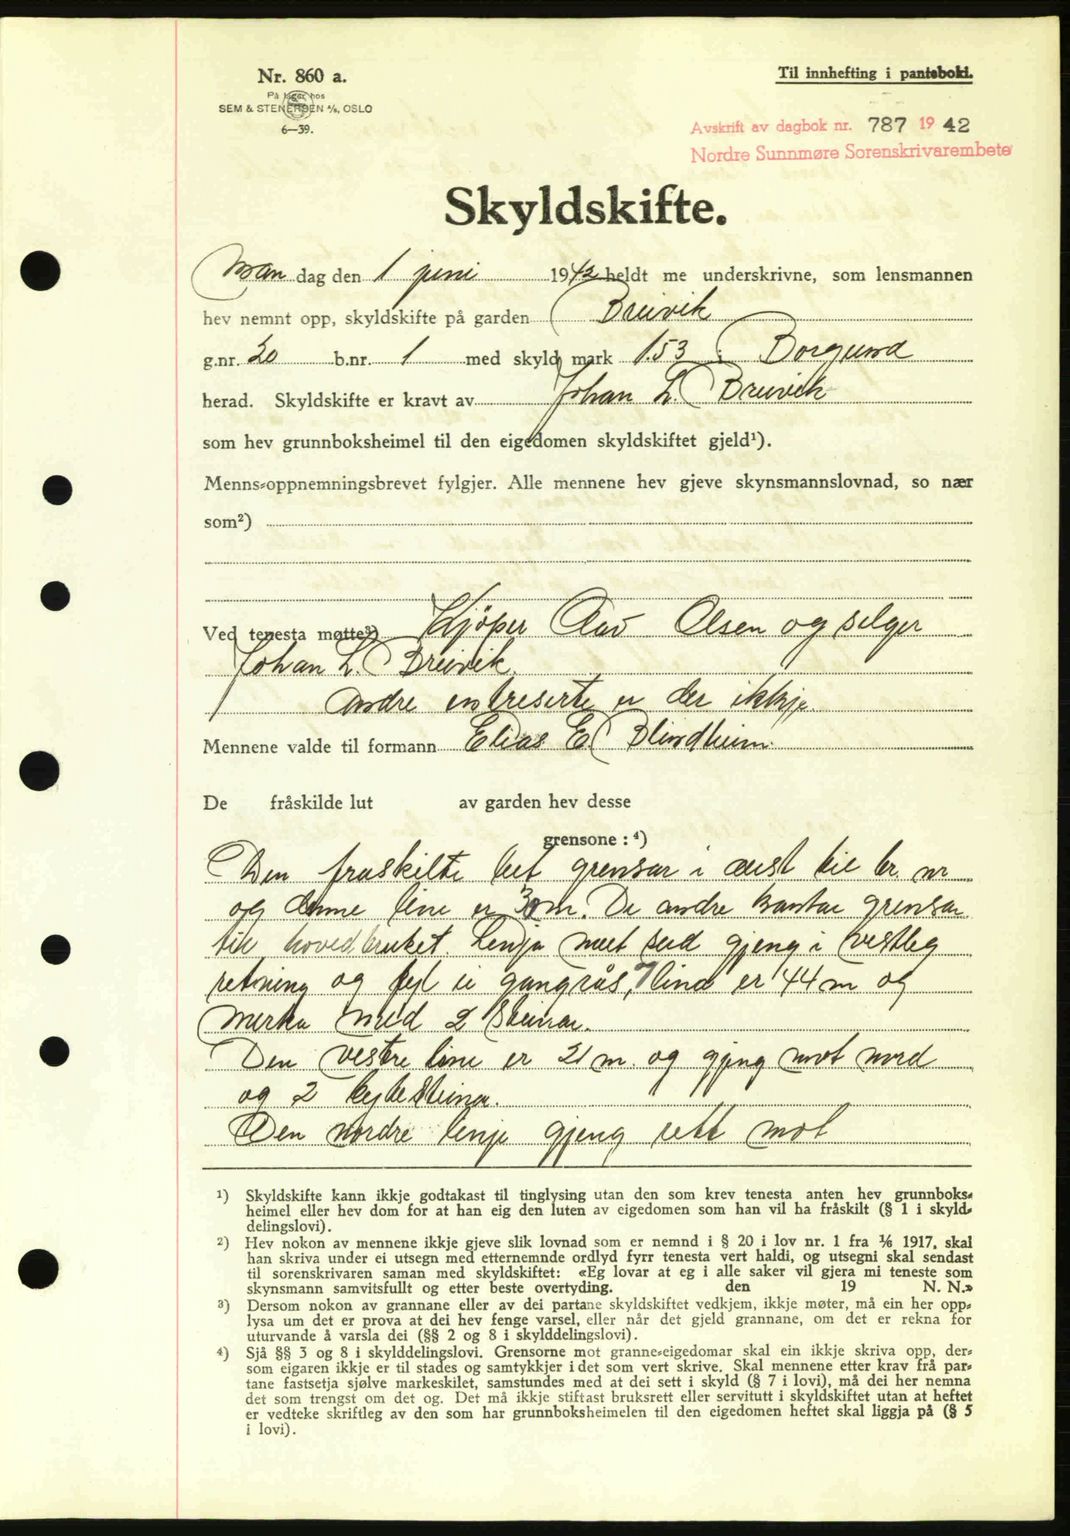 Nr. 860 a.
På lager hos
SEM & STENERSEN A/S, OSLO
6—39.
Til innhefting i panteboki.
Avskrift av dagbok nr. 787 19 42
Nordre Sunnmøre Sorenskrivarembete
Skyldskifte.
Man dag den 1 juni 1942 heldt me underskrivne, som lensmannen
hev nemnt opp, skyldskifte på garden Breivik
g.nr. 30 b.nr. 1 med skyld mark 1.53 i Borgund
herad. Skyldskifte er kravt av Johan L. Breivik
som hev grunnboksheimel til den eigedomen skyldskiftet gjeld¹).
Menns-oppnemningsbrevet fylgjer. Alle mennene hev gjeve skynsmannslovnad, so nær
som²)
Ved tenesta møtte³) Kjöper Olav Olsen og selger
Johan L. Breivik.
andre entreserte er der ikkje.
Mennene valde til formann Elias E. Blindheim.
De fråskilde lut av garden hev desse
grensone : ⁴)
Den fraskilte lut grensar i aust til br. nr
og denne line er 30 m. De andre kantar grensar
til hovedbruket. Linja mot sud gjeng i vestleg
retning og fyl ei gangrås, lina er 44 m og
merka med 2 steinar.
Den vestre line er 21 m. og gjeng mot nord
og 2 bytesteinar.
Den nordre linje gjeng rett mot
¹) Skyldskifte kann ikkje godtakast til tinglysing utan den som krev tenesta anten hev grunnboks-
heimel eller hev dom for at han eig den luten av eigedomen som han vil ha fråskilt (§ 1 i skyld-
delingslovi).
²) Hev nokon av mennene ikkje gjeve slik lovnad som er nemnd i § 20 i lov nr. 1 fra 1/6 1917, skal
han skriva under ei utsegn med etternemnde ordlyd fyrr tenesta vert haldi, og utsegni skal sendast
til sorenskrivaren saman med skyldskiftet: «Eg lovar at eg i alle saker vil gjera mi teneste som
skynsmann samvitsfullt og etter beste overtyding. den 19 N. N.»
³) Dersom nokon av grannane eller av dei partane skyldskiftet vedkjem, ikkje møter, må ein her opp-
lysa um det er prova at dei hev fenge varsel, eller når det gjeld grannane, om det er rekna for
uturvande å varsla dei (§§ 2 og 8 i skylddelingslovi).
⁴) Sjå §§ 3 og 8 i skylddelingslovi. Grensorne mot granne-eigedomar skal ein ikkje skriva opp, der-
som eigaren ikkje er til stades og samtykkjer i det som vert skrive. Skal mennene etter krav frå par-
tane fastsetja sjølve markeskilet, samstundes med at dei sett i skyld (§ 7 i lovi), må dei her nemna
det som trengst om det og. Det må ikkje stiftast bruksrett eller servitutt i skyldskiftet utan at heftet
er vedteke skriftleg av den som har grunnboksheimelen til den eigedomen heftet skal liggja på (§ 5
i lovi).